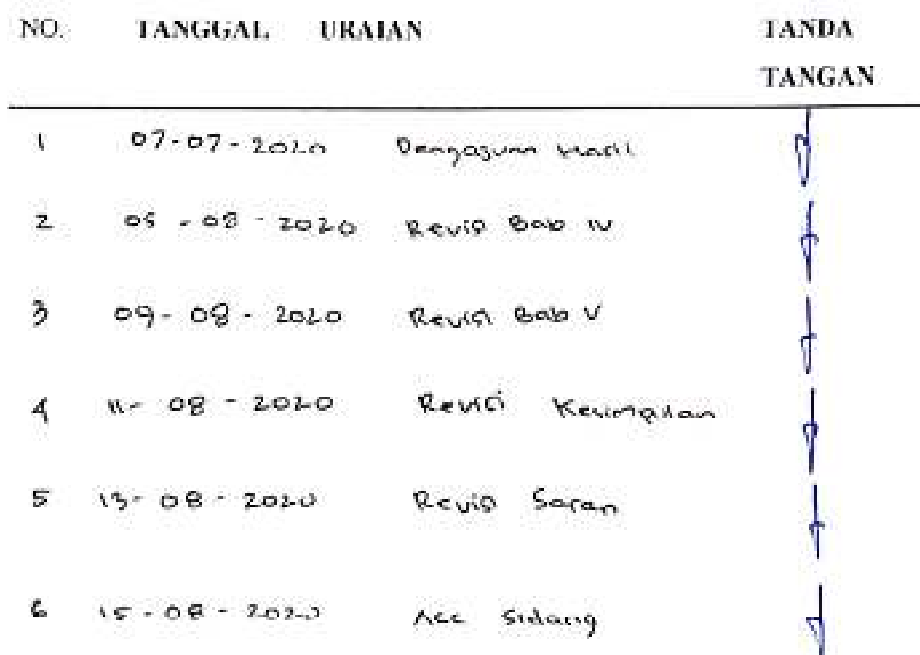 NO. TANGGAL URAIAN TANDA
TANGAN
1 07-07-2020 Pengajuan Hasil
2 05-08-2020 Revisi Bab IV
3 09-08-2020 Revisi Bab V
4 11-08-2020 Revisi Kesimpulan
5 13-08-2020 Revisi Saran
6 15-08-2020 Acc Sidang